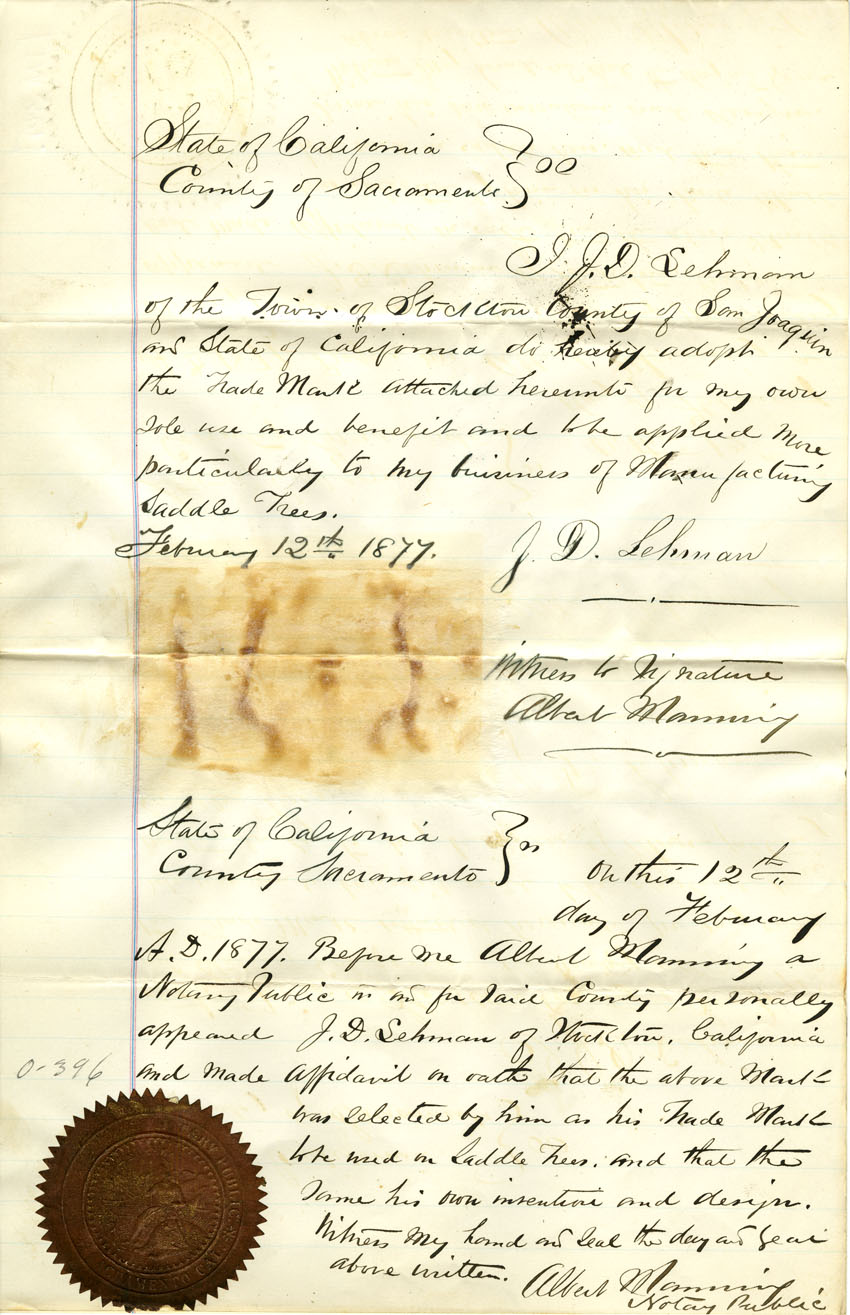 State of California
County of Sacramento } ss
I J. D. Lehman
of the Town of Stockton County of San Joaquin
and State of California do hereby adopt
the Trade Mark attached hereunto for my own
sole use and benefit and to be applied more
particularly to my buisiness of Manufacturing
Saddle Trees.
February 12th 1877.
J. D. Lehman
Witness to Signature
Albert Manning
State of California
County Sacramento } ss
On this 12th
day of February
A.D. 1877. Before me Albert Manning a
Notary Public in and for said County personally
appeared J. D. Lehman of Stockton, California
and made Affidavit on oath that the above Mark
was selected by him as his Trade Mark
to be used on Saddle Trees. and that the
same his own invention and design.
Witness my hand and seal the day and year
above written.
Albert Manning
Notary Public
0-396